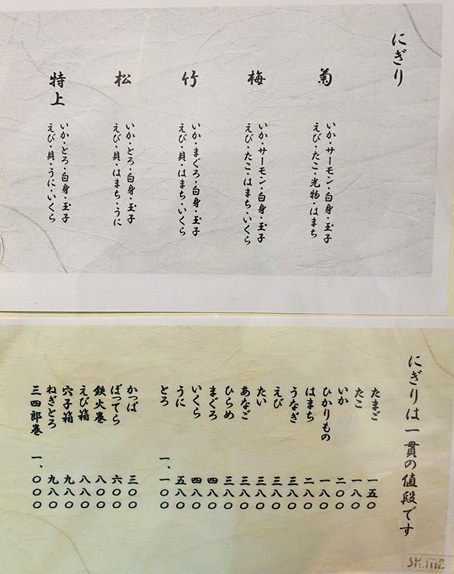 にぎり
菊
いか・サーモン・白身・玉子
えび・たこ・光物・はまち
梅
いか・サーモン・白身・玉子
えび・たこ・はまち・いくら
竹
いか・まぐろ・白身・玉子
えび・貝・はまち・いくら
松
いか・とろ・白身・玉子
えび・貝・はまち・うに
特上
いか・とろ・白身・玉子
えび・貝・うに・いくら
にぎりは一貫の値段です
たまご 一五〇
たこ 一八〇
いか 二〇〇
ひかりもの 一八〇
はまち 二八〇
うなぎ 三八〇
えび 三八〇
たい 三八〇
あなご 三八〇
ひらめ 三八〇
まぐろ 四八〇
いくら 四八〇
うに 五八〇
とろ 一、一〇〇
かっぱ 三〇〇
ばってら 六〇〇
鉄火巻 八〇〇
えび箱 八八〇
穴子箱 九八〇
ねぎとろ 九八〇
三四郎巻 一、〇〇〇